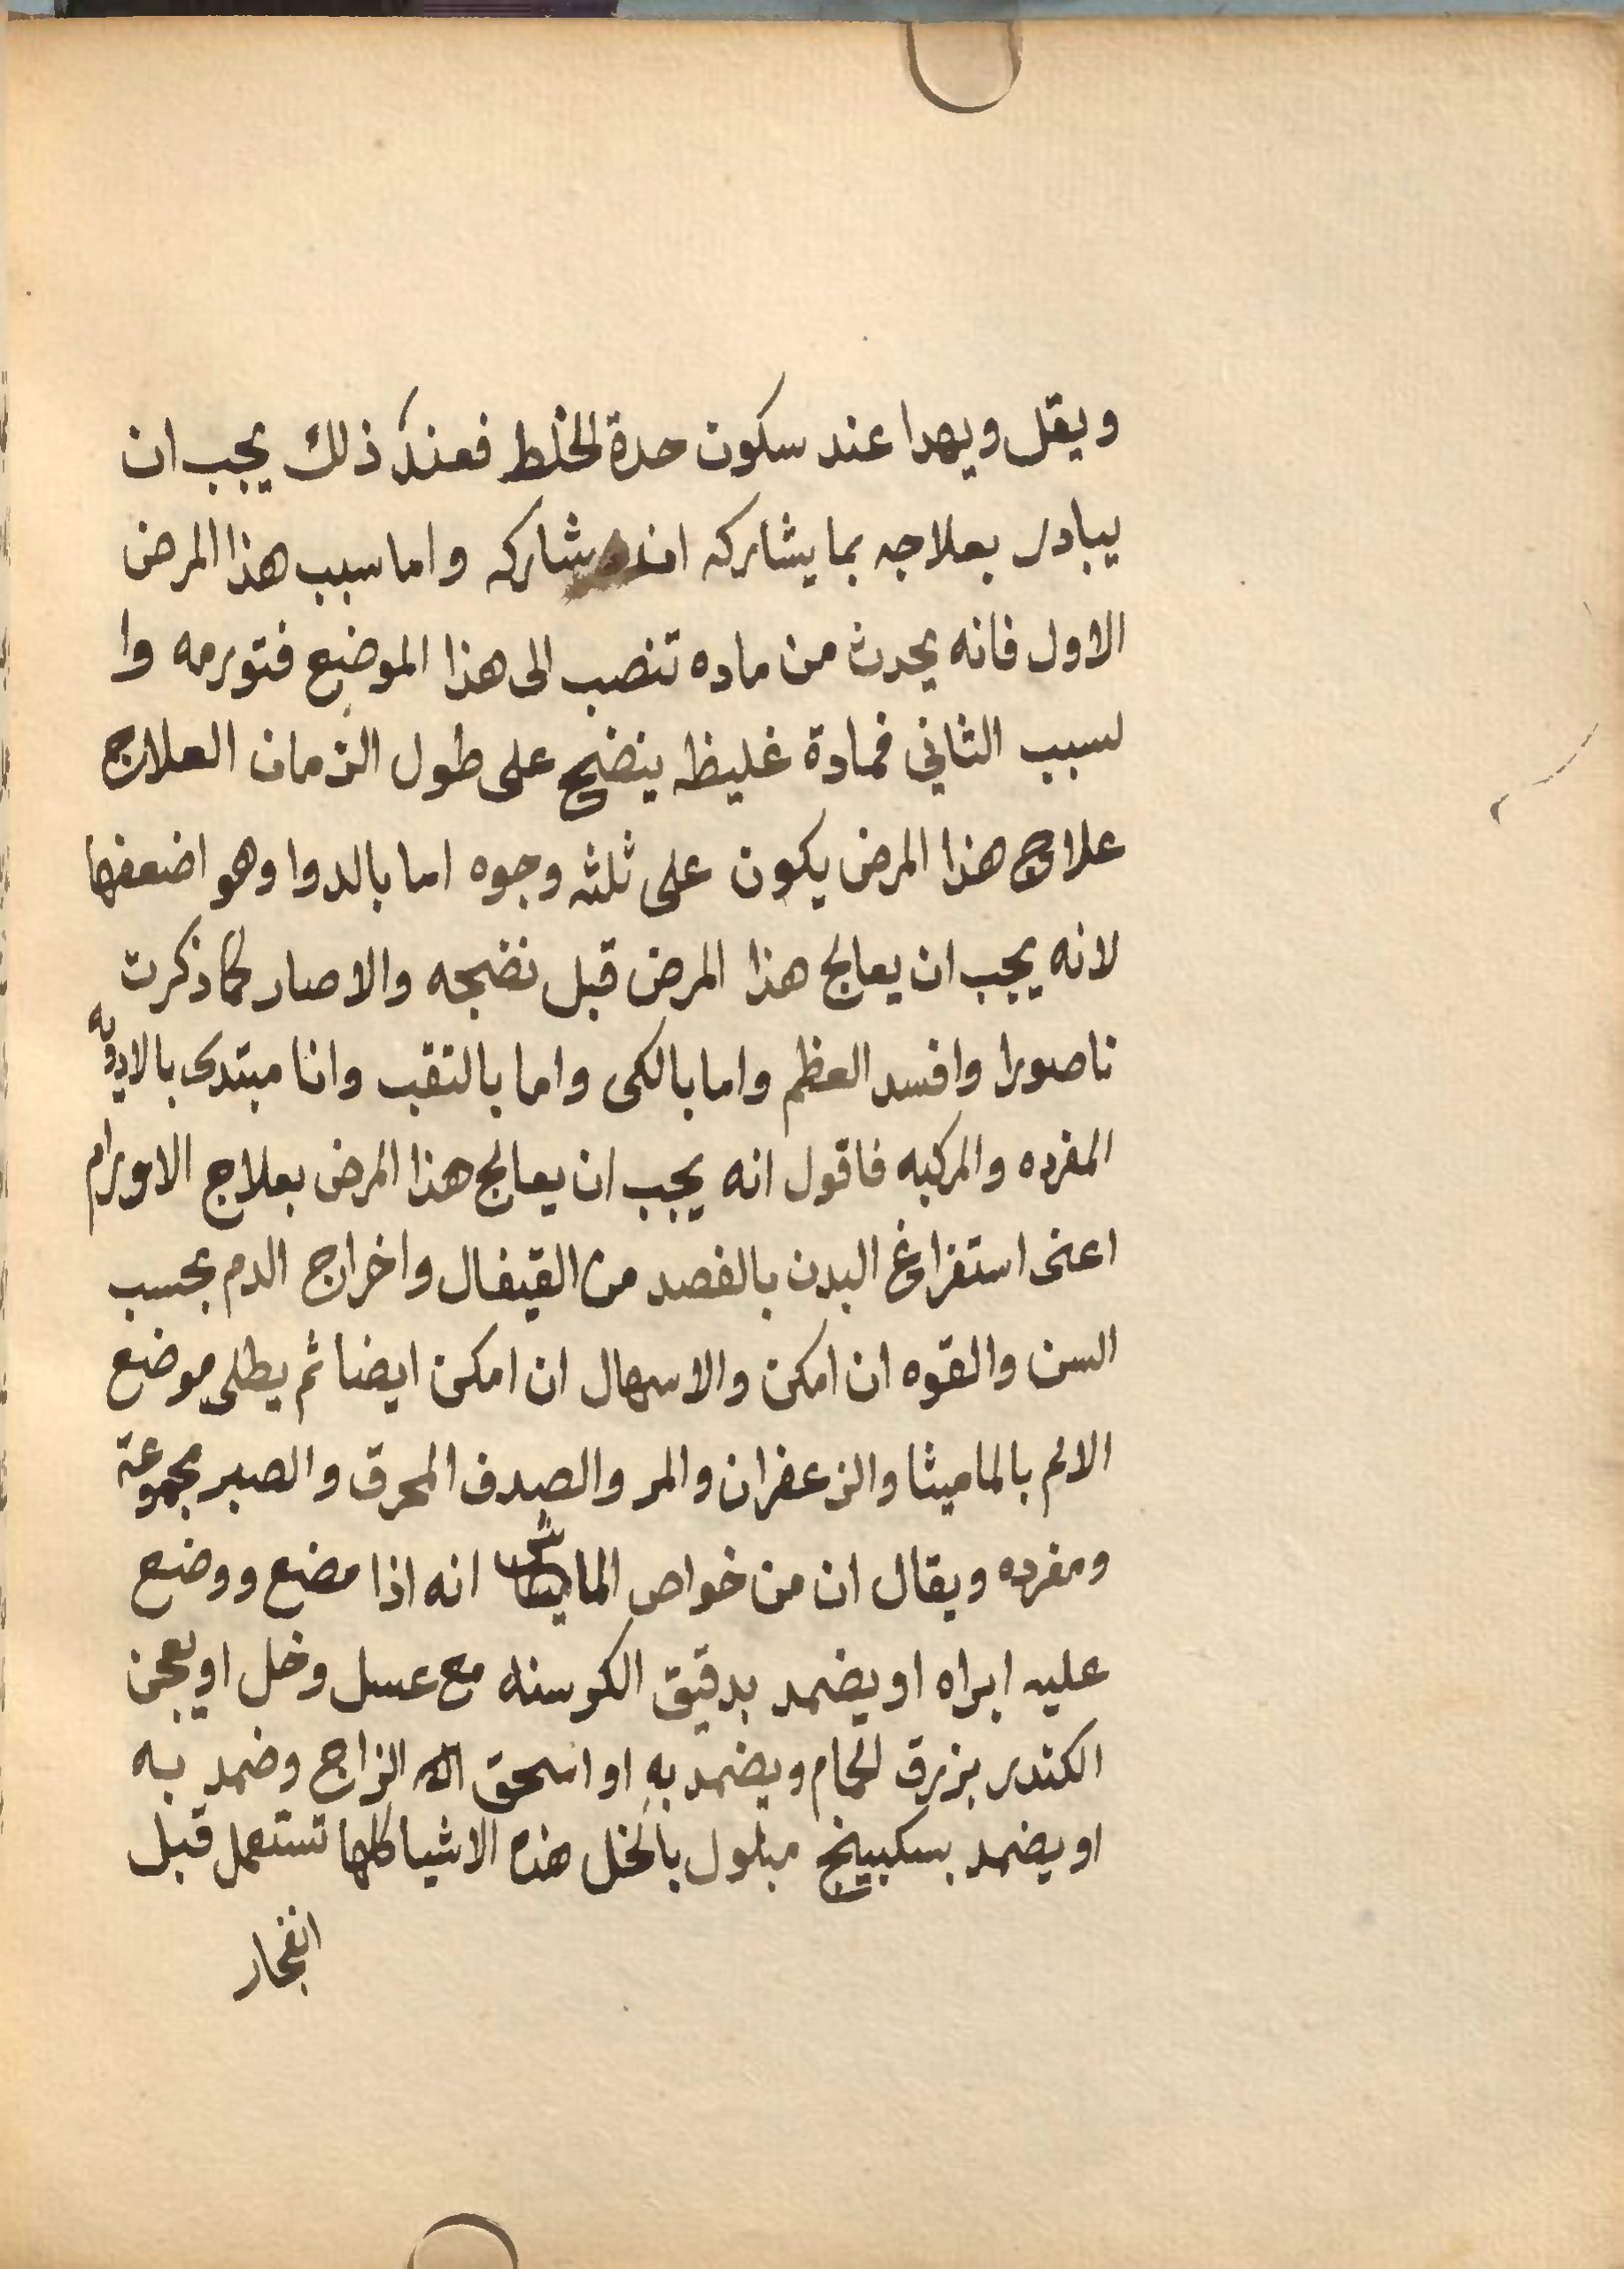 ويقل ويهدا عند سكون حدة الخلط فعند ذلك يجب ان
يبادر بعلاجه بما يشاركه مشاركه واما سبب هذا المرض
الاول فانه يحدث من ماده تنصب الى هذا الموضع فتورمه وا
لسبب الثاني فمادة غليظه ينضج على طول الزمان العلاج
علاج هذا المرض يكون على ثلثه وجوه اما بالدوا وهو اضعفها
لانه يجب ان يعالج هذا المرض قبل نضجه والا صار كما ذكرت
ناصورا وافسد العظم واما بالكى واما بالثقب وانا مبتدى بالادويه
المفرده والمركبه فاقول انه يجب ان يعالج هذا المرض بعلاج الاورام
اعنى استفراغ البدن بالفصد من القيفال واخراج الدم بحسب
السن والقوه ان امكن والاسهال ان امكن ايضا ثم يطلى موضع
الالم بالماميثا والزعفران والمر والصدف المحرق والصبر مجموعة
ومفرده ويقال ان من خواص انه اذا مضع ووضع
عليه ابراه او يضمد بدقيق الكرسنه مع عسل وخل او يعجن
الكندر بزرق الحمام ويضمد به او اسحق الزاج وضمد به
او يضمد بسكبينج مبلول بالخل هذه الاشيا كلها تستعمل قبل
انفجار